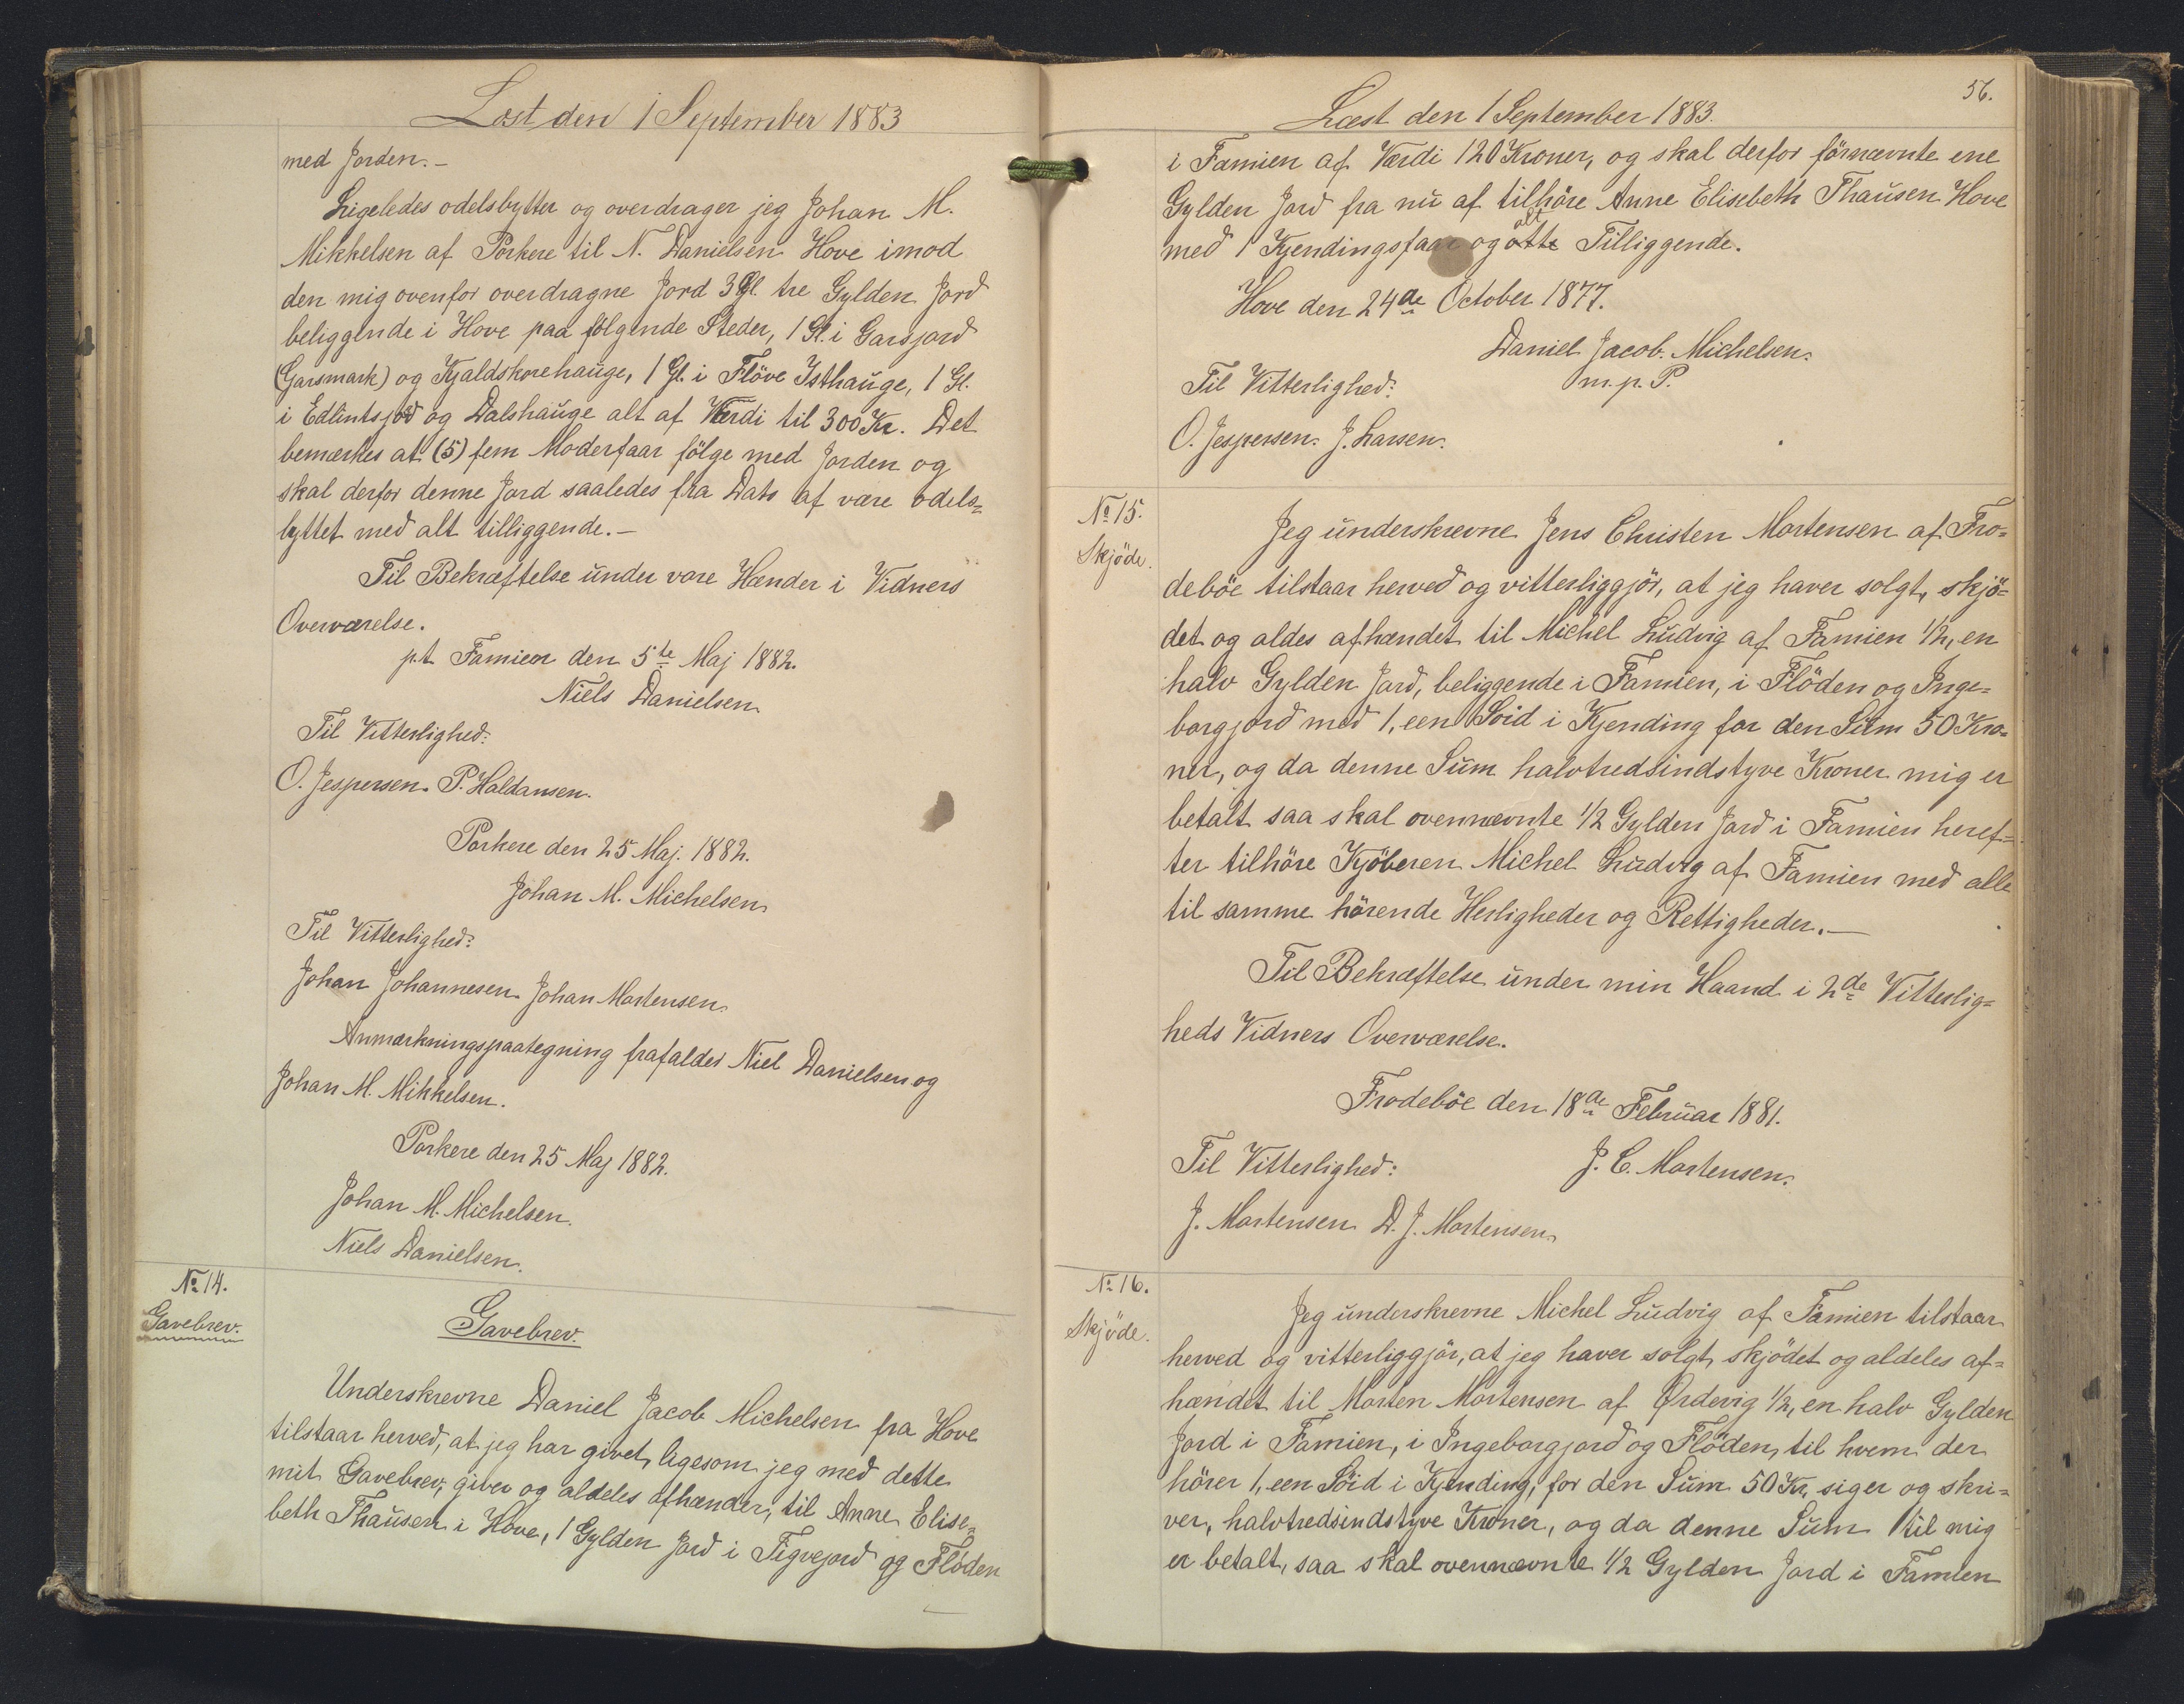 Læst den 1 September 1883
med Jorden.-
Ligeledes odelsbytter og overdrager jeg Johan M.
Mikkelsen af Porkere til N. Danielsen Hove imod
den mig ovenfor overdragne Jord 3 Gl. tre Gylden Jord
beliggende i Hove paa fölgende Steder, 1 Gl. i Garsjord
(Garsmark) og Kjaldskorehauge, 1 Gl. i Flöve Isthauge, 1 Gl.
i Edlintsjord og Dalshauge alt af Værdi til 300 Kr. Det
bemærkes at (5) fem Moderfaar fölge med Jorden og
skal derfor denne Jord saaledes fra Dato af være odels=
byttet med alt tilliggende.-
Til Bekræftelse under vore Hænder i Vidners
Overværelse.
p.t. Famien den 5te Maj 1882.
Niels Danielsen
Til Vitterlighed:
O. Jespersen. P. Haldansen.
Porkere den 25 Maj. 1882.
Johan M. Michelsen
Til Vitterlighed:
Johan Johannesen. Johan Mortensen.
Anmærkningspaategning frafalder Niel Danielsen og
Johan M. Mikkelsen.
Porkere den 25 Maj 1882.
Johan M. Michelsen.
Niels Danielsen.
No 14.
Gavebrev.
Gavebrev.
Underskrevne Daniel Jacob Michelsen fra Hove
tilstaar herved, at jeg har givet, ligesom jeg med dette
mit Gavebrev, giver og aldeles afhænder, til Anne Elise=
beth Thausen i Hove, 1 Gylden Jord i Tigvejord og Flöden
56.
Læst den 1 September 1883.
i Famien af Værdi 120 Kroner, og skal derfor förnævnte ene
Gylden Jord fra nu af tilhöre Anne Elisebeth Thausen Hove
med 1 Kjendingsfaar og Tilliggende.
Hove den 24de October 1877.
Daniel Jacob. Michelsen.
m.p.P.
Til Vitterlighed:
O. Jespersen. J. Larsen.
No 15.
Skjöde.
Jeg underskrevne Jens Christen Mortensen af Fro=
deböe tilstaar herved og vitterliggjör, at jeg haver solgt, skjö=
det og aldes afhændet til Michel Ludvig af Famien 1/2, en
halv Gylden Jord, beliggende i Famien, i Flöden og Inge=
borgjord med 1, een Soid i Kjending for den Sum 50 Kro=
ner, og da denne Sum halvtredsindstyve Kroner mig er
betalt saa skal ovennævnte 1/2 Gylden Jord i Famien heref=
ter tilhöre Kjöberen Michel Ludvig af Famien med alle
til samme hörende Herligheder og Rettigheder.-
Til Bekræftelse under min Haand i 2de Vitterlig=
heds Vidners Overværelse.
Frodeböe den 18de Februar 1881.
Til Vitterlighed: J. C. Mortensen.
J. Mortensen D. J. Mortensen
No 16.
Skjöde.
Jeg underskrevne Michel Ludvig af Famien tilstaar
herved og vitterliggjör, at jeg haver solgt, skjödet og aldeles af=
hændet til Morten Mortensen af Ørdevig 1/2, en halv Gylden
Jord i Famien, i Ingeborgjord og Flöden, til hvem der
hörer 1, een Söid i Kjending, for den Sum 50 Kr, siger og skri=
ver, halvtredsindstyve Kroner, og da denne Sum til mig
er betalt, saa skal ovennævnte 1/2 Gylden Jord i Famien